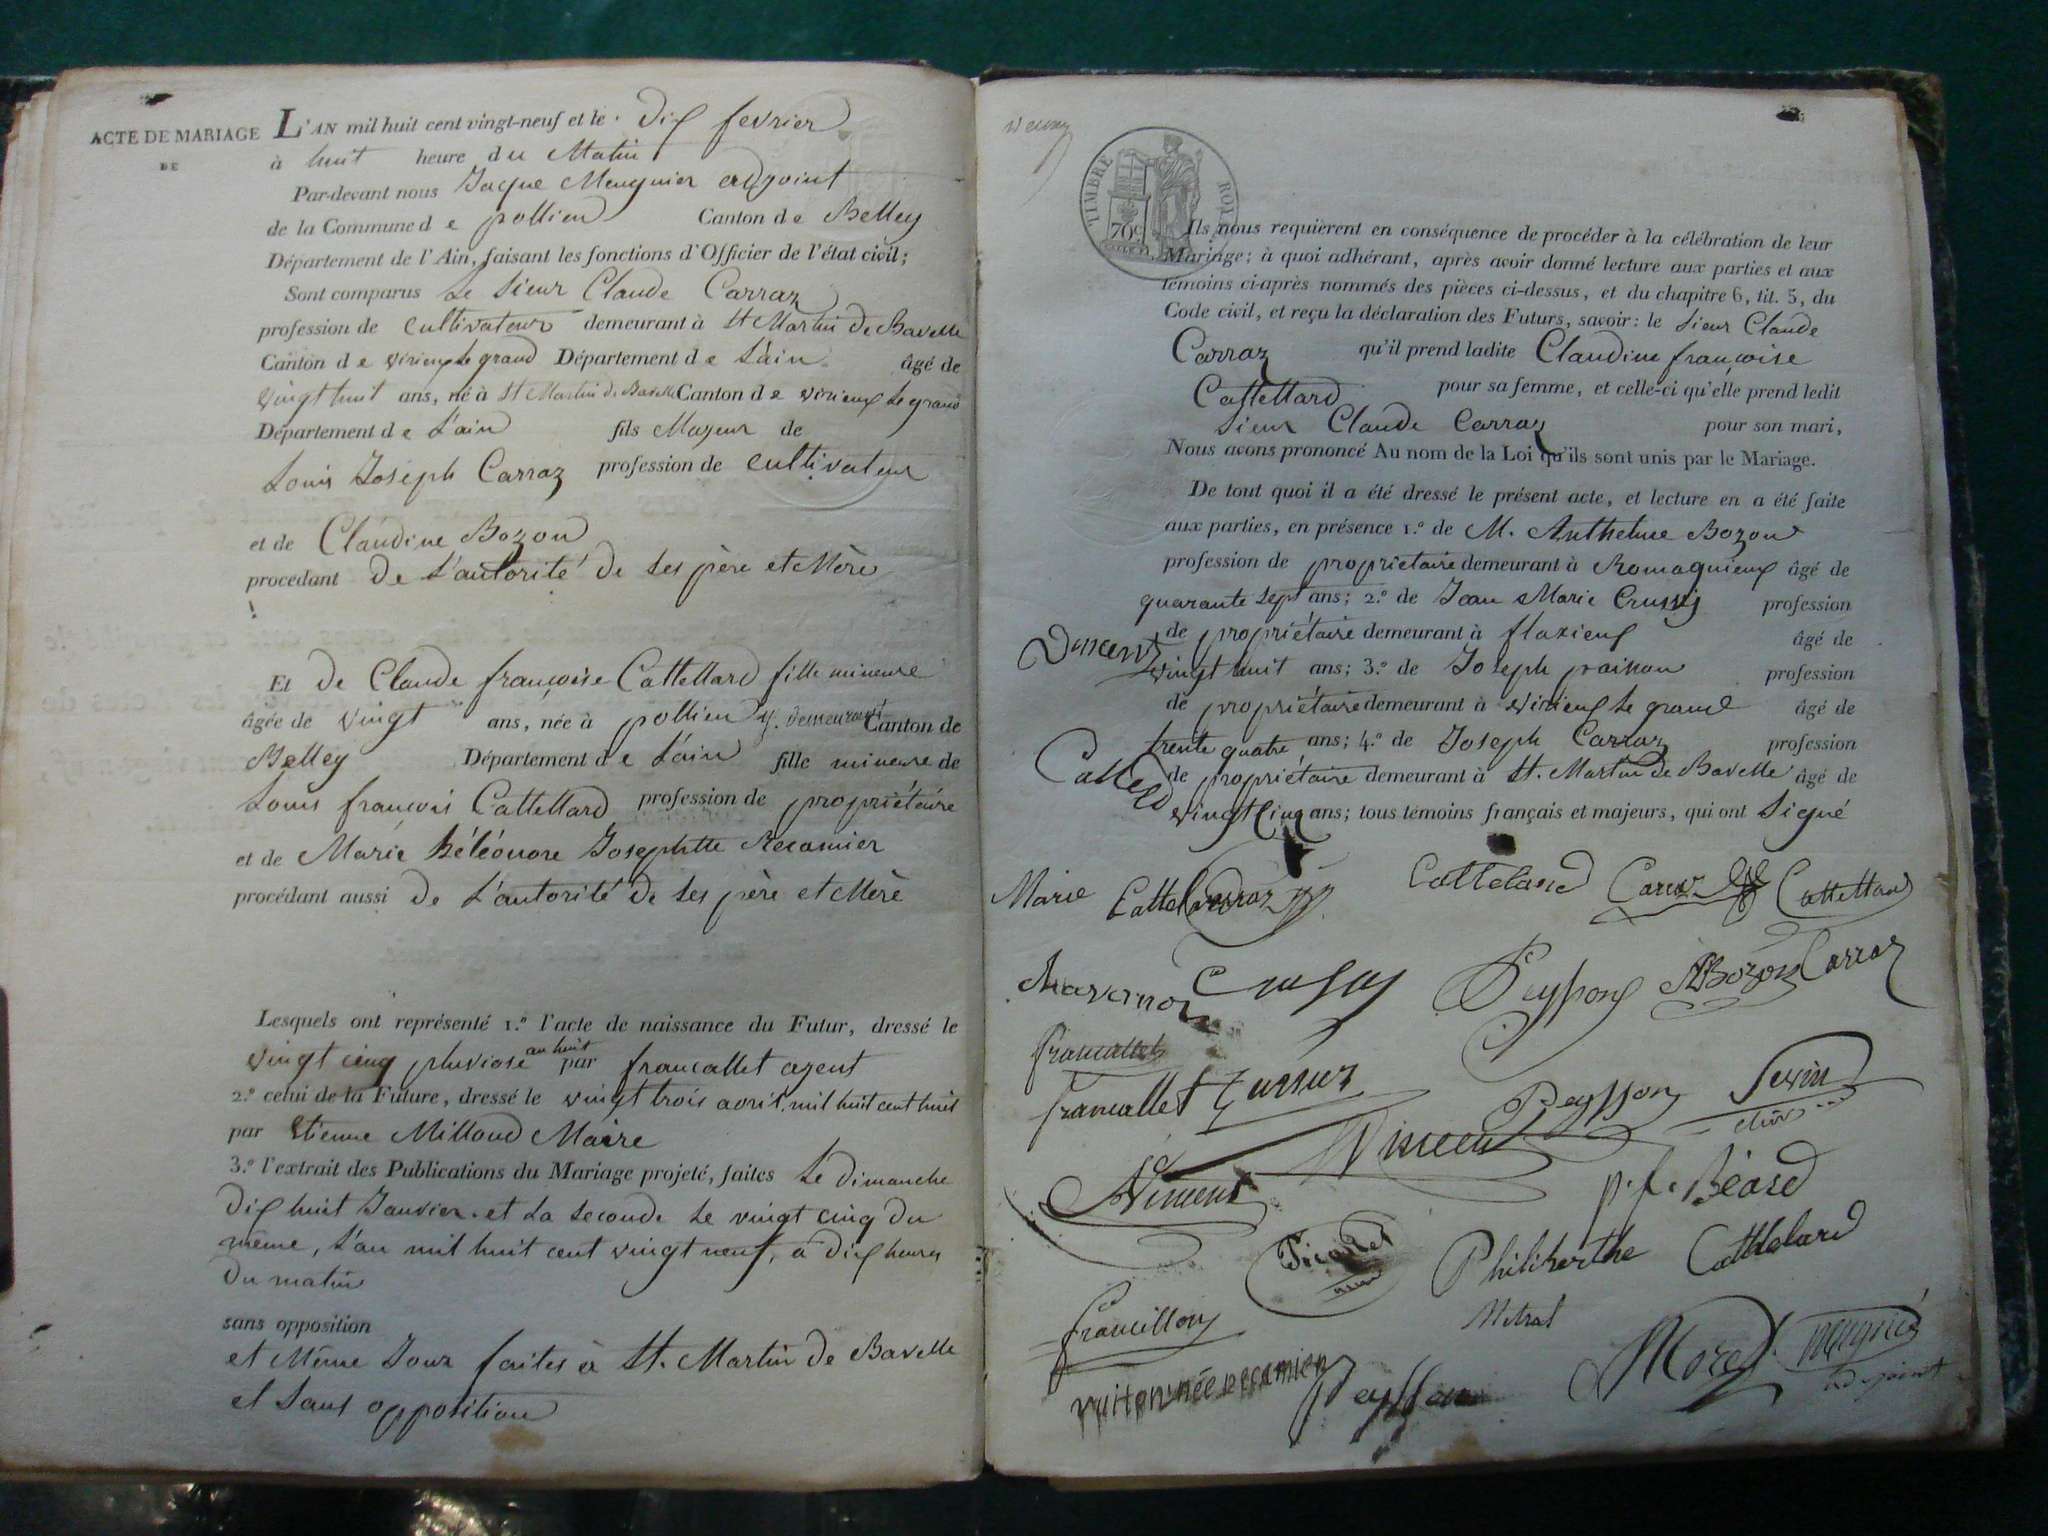 ACTE DE MARIAGE
DE
L'AN mil huit cent vingt-neuf et le dix fevrier
à huit heure du Matin
Par-devant nous Jaque Meugnier adjoint
de la Commune de pollieu Canton de Belley
Département de l'Ain, faisant les fonctions d'Officier de l'état civil;
Sont comparus Le Sieur Claude Carraz
profession de cultivateur demeurant à St Martin de Bavelle
Canton de virieux Le grand Département de L'ain âgé de
vingt huit ans, né à St Martin de Bavelle Canton de virieux Le grand
Département de L'ain fils Majeur de
Louis Joseph Carraz profession de cultivateur
et de Claudine Bozon
procédant de L'autorité de ses père et Mère
Et de Claude françoise Cattellard fille mineure
âgée de vingt ans, née à pollieu y demeurant Canton de
Belley Département de L'ain fille mineure de
Louis françois Cattellard profession de propriétaire
et de Marie Béléonore Josephtte Recamier
procédant aussi de L'autorité de ses père et Mère
Lesquels ont représenté 1.º l'acte de naissance du Futur, dressé le
vingt cinq pluviose an huit par francallet agent
2.º celui de la Future, dressé le vingt trois avril mil huit cent huit
par Etienne Milloud Maire
3.º l'extrait des Publications du Mariage projeté, faites Le dimanche
dix huit Janvier et La seconde Le vingt cinq du
même, L'an mil huit cent vingt neuf, à dix heures
du matin
sans opposition
et Même Jour faites à St. Martin de Bavelle
et sans opposition
TIMBRE ROYAL
70c
Ils nous requièrent en conséquence de procéder à la célébration de leur
Mariage; à quoi adhérant, après avoir donné lecture aux parties et aux
témoins ci-après nommés des pièces ci-dessus, et du chapitre 6, tit. 5, du
Code civil, et reçu la déclaration des Futurs, savoir: le Sieur Claude
Carraz qu'il prend ladite Claudine françoise
Cattellard pour sa femme, et celle-ci qu'elle prend ledit
Sieur Claude Carraz pour son mari,
Nous avons prononcé Au nom de la Loi qu'ils sont unis par le Mariage.
De tout quoi il a été dressé le présent acte, et lecture en a été faite
aux parties, en présence 1.º de M. Anthelme Bozon
profession de propriétaire demeurant à Romagnieux âgé de
quarante sept ans; 2.º de Jean Marie Crussy profession
de propriétaire demeurant à flaxieux âgé de
vingt huit ans; 3.º de Joseph profession
de propriétaire demeurant à virieux Le grand âgé de
trente quatre ans; 4.º de Joseph Carraz profession
de propriétaire demeurant à St. Martin de Bavelle âgé de
vingt Cinq ans; tous témoins français et majeurs, qui ont Signé
Marie Cattelard Carraz Cattelard Carraz Cattellard
Chavernoz Crussy Peysson ABozon Carraz
francallet
francallet Peysson
Vincent
Vincent p. f. Béard
Picollet Philiberthe Cattelard
francillon Metral
vuiton née recamier Peysson Morel Meugnié
adjoint